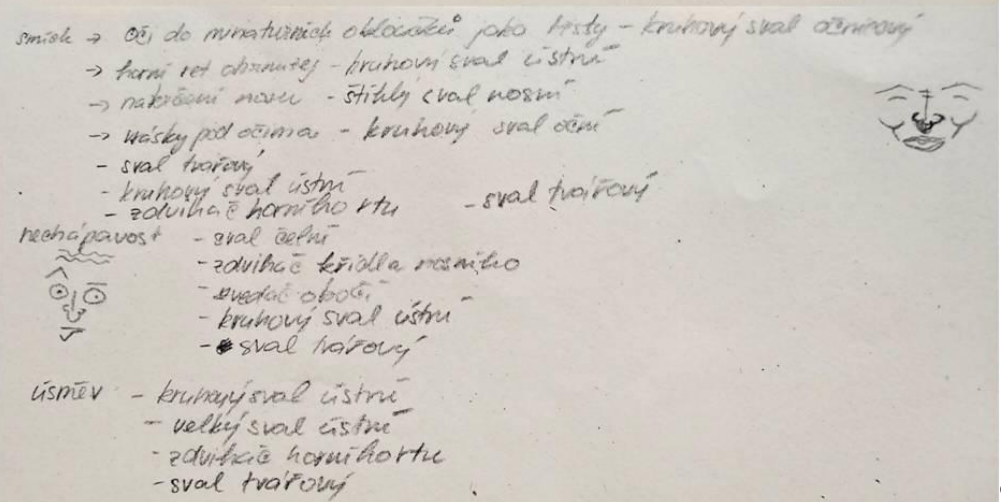 smích → oči do miniaturních obloučků jako tisty - kruhový sval očnicový
→ horní ret ohrnutej - kruhový sval ústní
→ nakrčení nosu - štíhlý sval nosní
→ vrásky pod očima - kruhový sval oční
- sval tvářový
- kruhový sval ústní
- zdvihač horního rtu - sval tvářový
nechápavost - sval čelní
- zdvihač křídla nosního
- svedač obočí
- kruhový sval ústní
- sval tvářový
úsměv - kruhový sval ústní
- velký sval ústní
- zdvihač horního rtu
- sval tvářový